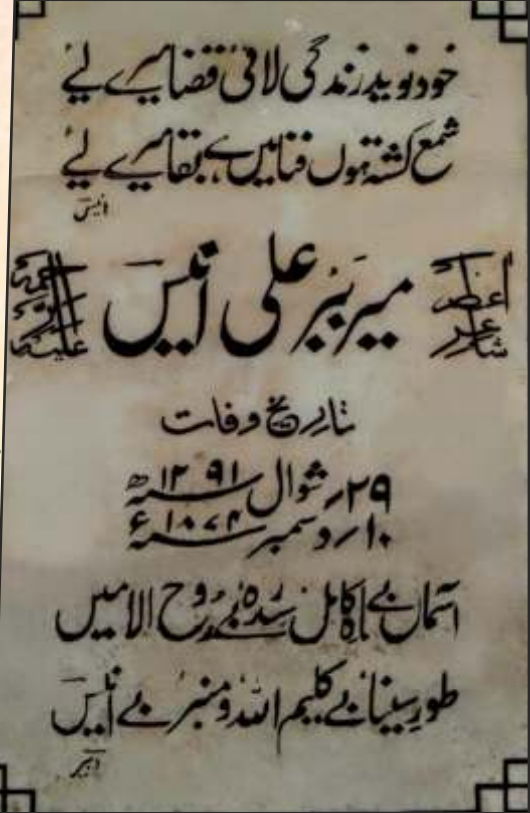 خود نوید زندگی لائی قضا میرے لیے
شمع کشتہ ہوں فنا میں ہے بقا میرے لیے
انیسؔ
شاعر اعظم میر ببر علی انیسؔ رحمۃ اللہ علیہ
تاریخ وفات
۲۹؍ شوال ۱۲۹۱ھ
۱۰؍ دسمبر ۱۸۷۴ء
آسماں بے ماہ کامل سدرہ بے روح الامیں
طور سینا بے کلیم اللہ و منبر بے انیسؔ
دبیر